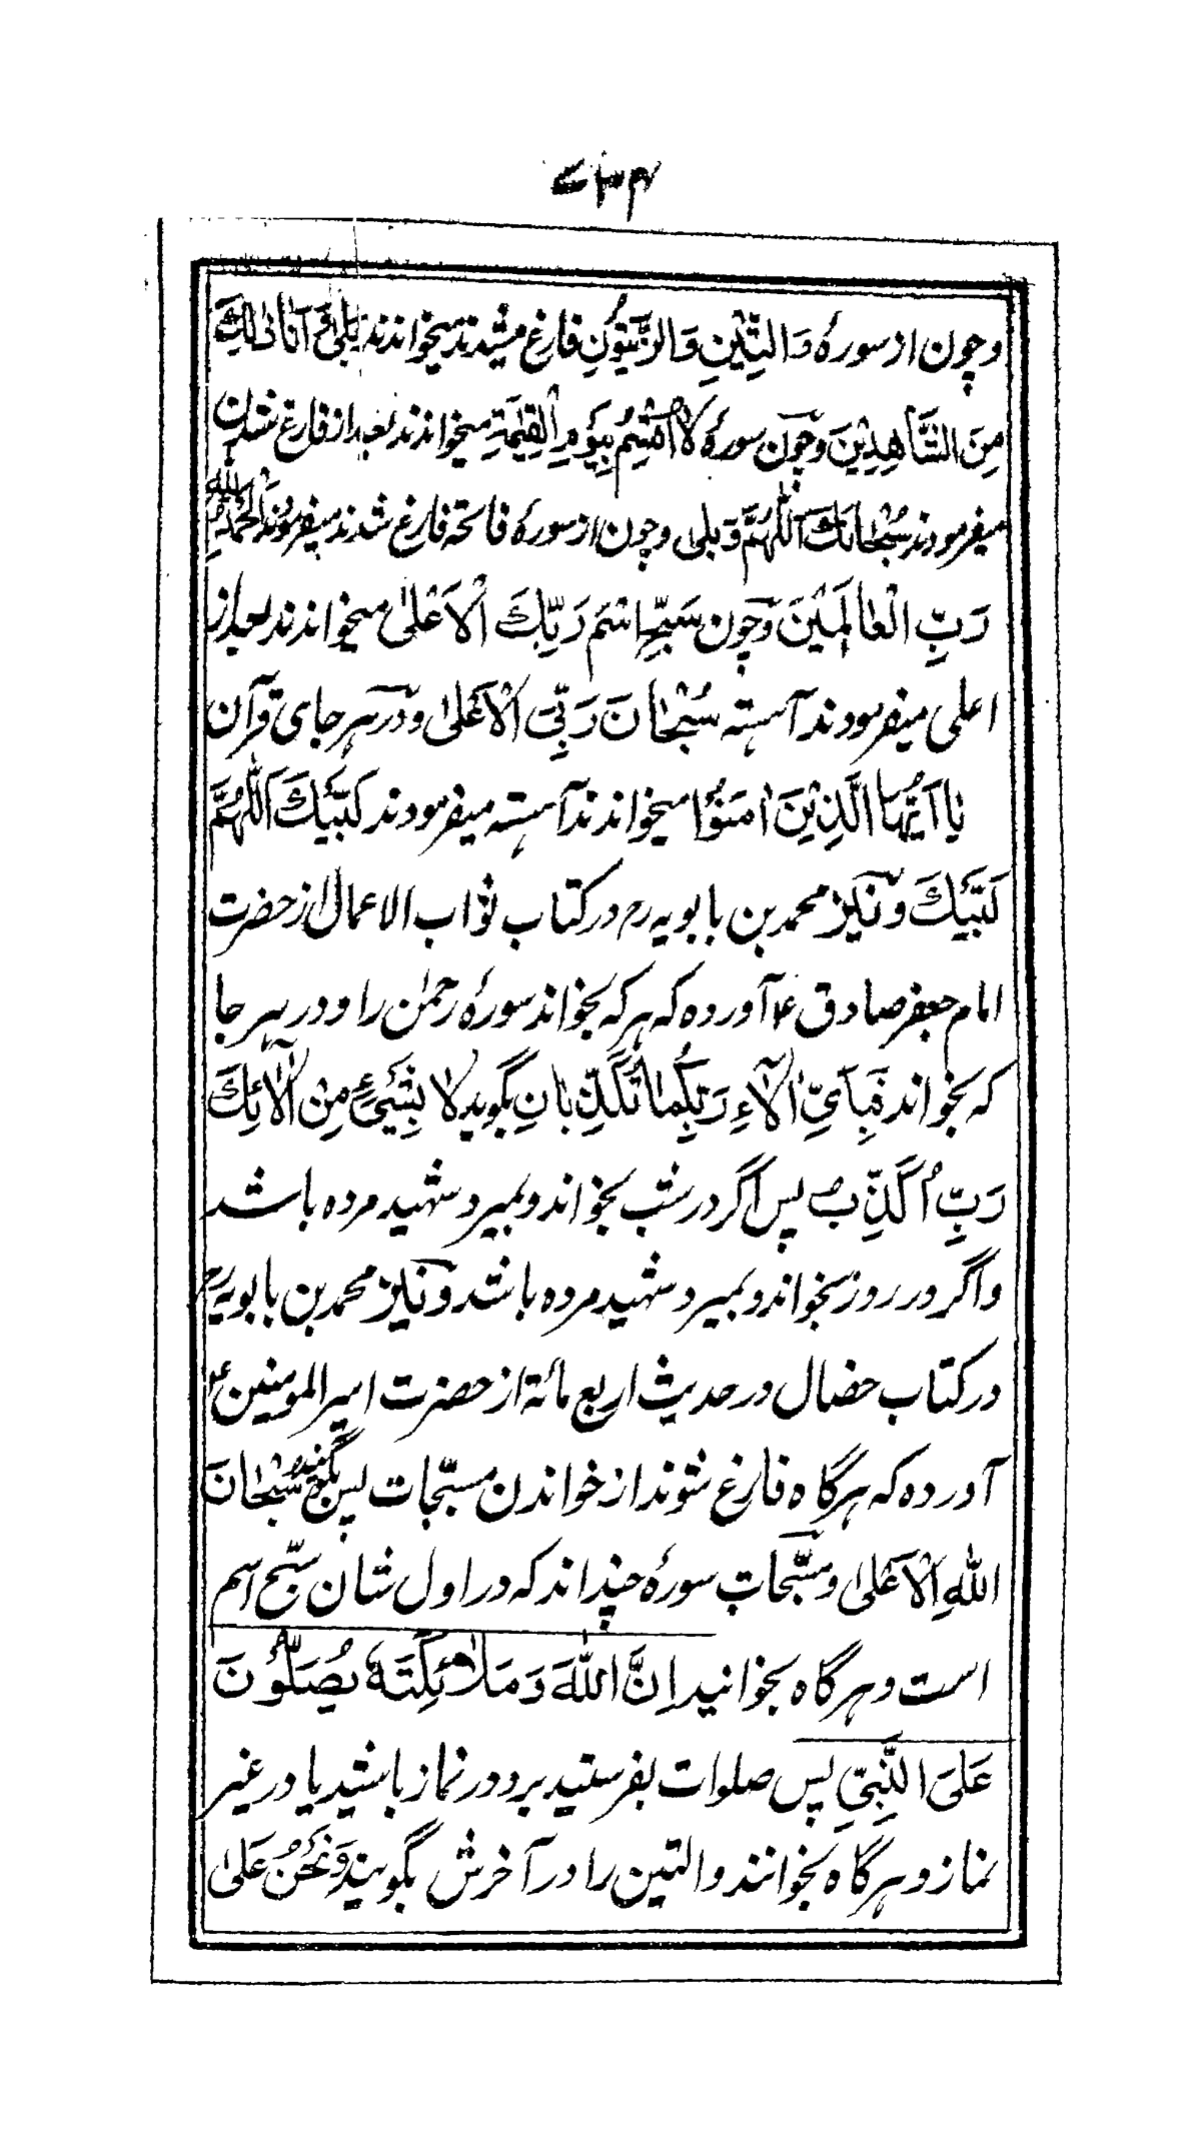 وچون از سورهٔ وَالتِّیْنِ وَالزَّیْتُوْنِ فارغ میشدند میخواندند بَلیٰ وَ اَنَا عَلیٰ ذٰلِكَ
مِنَ الشَّاهِدِیْنَ وچون سورهٔ لَا اُقْسِمُ بِیَوْمِ الْقِیٰمَةِ میخواندند بعد از فارغ شدن
میفرمودند سُبْحَانَكَ اَللّٰهُمَّ وَبلی وچون از سورهٔ فاتحه فارغ شدند میفرمودند اَلْحَمْدُ لِلّٰهِ
رَبِّ الْعَالَمِیْنَ وچون سَبِّحِ اسْمَ رَبِّكَ الْاَعْلیٰ میخواندند بعد از
اعلی میفرمودند آهسته سُبْحَانَ رَبِّیَ الْاَعْلیٰ ودر هر جای قرآن
یَا اَیُّهَا الَّذِیْنَ اٰمَنُوْا میخواندند آهسته میفرمودند لَبَّیْكَ اَللّٰهُمَّ
لَبَّیْكَ ونیز محمد بن بابویه رح در کتاب ثواب الاعمال از حضرت
امام جعفر صادق ع آورده که هر که بخواند سورهٔ رحمٰن را ودر هر جا
که بخواند فَبِاَیِّ اٰلَآءِ رَبِّكُمَا تُكَذِّبَانِ بگوید لَا بِشَیْءٍ مِنْ اٰلَآئِكَ
رَبِّ اُكَذِّبُ پس اگر در شب بخواند وبمیرد شهید مرده باشد
واگر در روز بخواند وبمیرد شهید مرده باشد ونیز محمد بن بابویه رح
در کتاب خصال در حدیث اربع مائة از حضرت امیر المومنین ع
آورده که هر گاه فارغ شوند از خواندن مسبّحات پس بگویند سُبْحَانَ
اللّٰهِ الْاَعْلیٰ ومسبّحات سورهٔ چند اند که در اول شان سبّح اسم
است وهر گاه بخوانید اِنَّ اللّٰهَ وَمَلَائِكَتَهٗ یُصَلُّوْنَ
عَلَی النَّبِیِّ پس صلوات بفرستید برو در نماز باشید یا در غیر
نماز وهر گاه بخوانند والتین را در آخرش بگویند وَنَحْنُ عَلیٰ